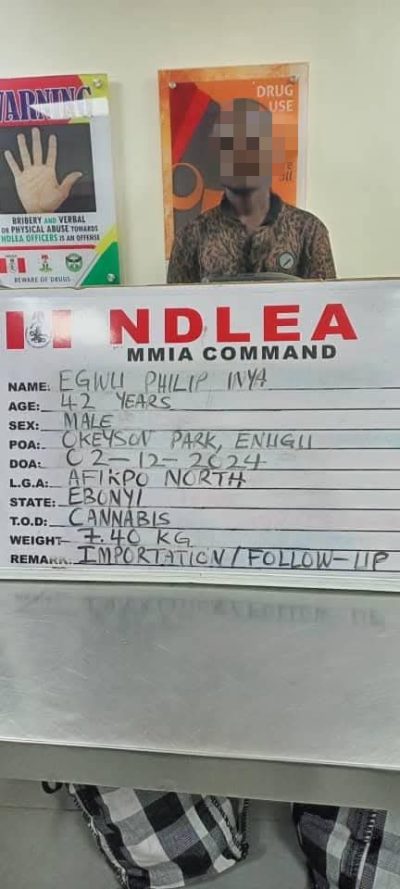 WARNING
DRUG
USE
BRIBERY AND VERBAL
OR PHYSICAL ABUSE TOWARDS
NDLEA OFFICERS IS AN OFFENSE
BEWARE OF DRUGS
NDLEA
MMIA COMMAND
NAME: EGWU PHILIP INYA
AGE: 42 YEARS
SEX: MALE
POA: OKEYSON PARK, ENUGU
DOA: 02-12-2024
L.G.A: AFIKPO NORTH
STATE: EBONYI
T.O.D: CANNABIS
WEIGHT- 7.40 KG
REMARK: IMPORTATION/FOLLOW-UP